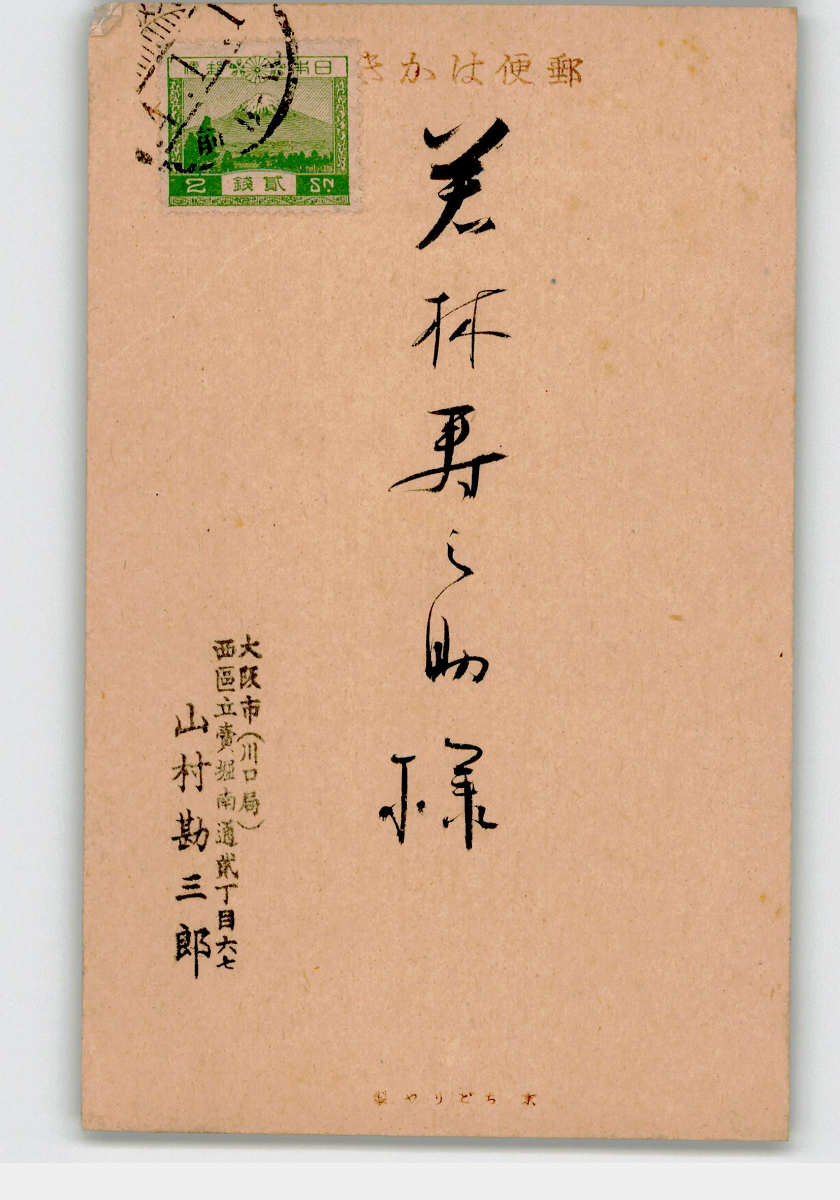 郵便はかき
日本郵便
2 貳錢 SN
前
若林寿之助様
大阪市(川口局)
西區立賣堀南通貳丁目六七
山村勘三郎
京ちどりや製